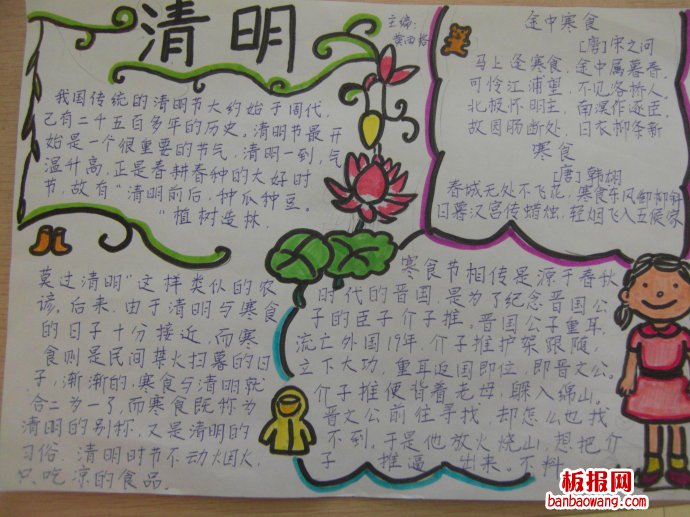 清明
主编:
我国传统的清明节大约始于周代,
已有二千五百多年的历史。清明节最开
始是一个很重要的节气,清明一到,气
温升高,正是春耕春种的大好时
节,故有“清明前后,种瓜种豆。”
“植树造林,
莫过清明”这样类似的农
谚。后来,由于清明与寒食
的日子十分接近,而寒
食则是民间禁火扫墓的日
子,渐渐的,寒食与清明就
合二为一了,而寒食既称为
清明的别称,又是清明的
习俗,清明时节不动烟火,
只吃凉的食品。
途中寒食
[唐]宋之问
马上逢寒食,途中属暮春。
可怜江浦望,不见洛桥人。
北极怀明主,南溟作逐臣。
故园肠断处,日夜柳条新
寒食
[唐]韩翃
春城无处不飞花,寒食东风御柳斜
日暮汉宫传蜡烛,轻烟飞入五侯家
寒食节相传是源于春秋
时代的晋国,是为了纪念晋国公
子的臣子介子推。晋国公子重耳,
流亡外国19年,介子推护驾跟随
立下大功,重耳返国即位,即晋文公。
介子推便背着老母,躲入绵山。
晋文公前往寻找,却怎么也找
不到,于是他放火烧山,想把介
子推逼出来。不料
板报网
banbaowang.com